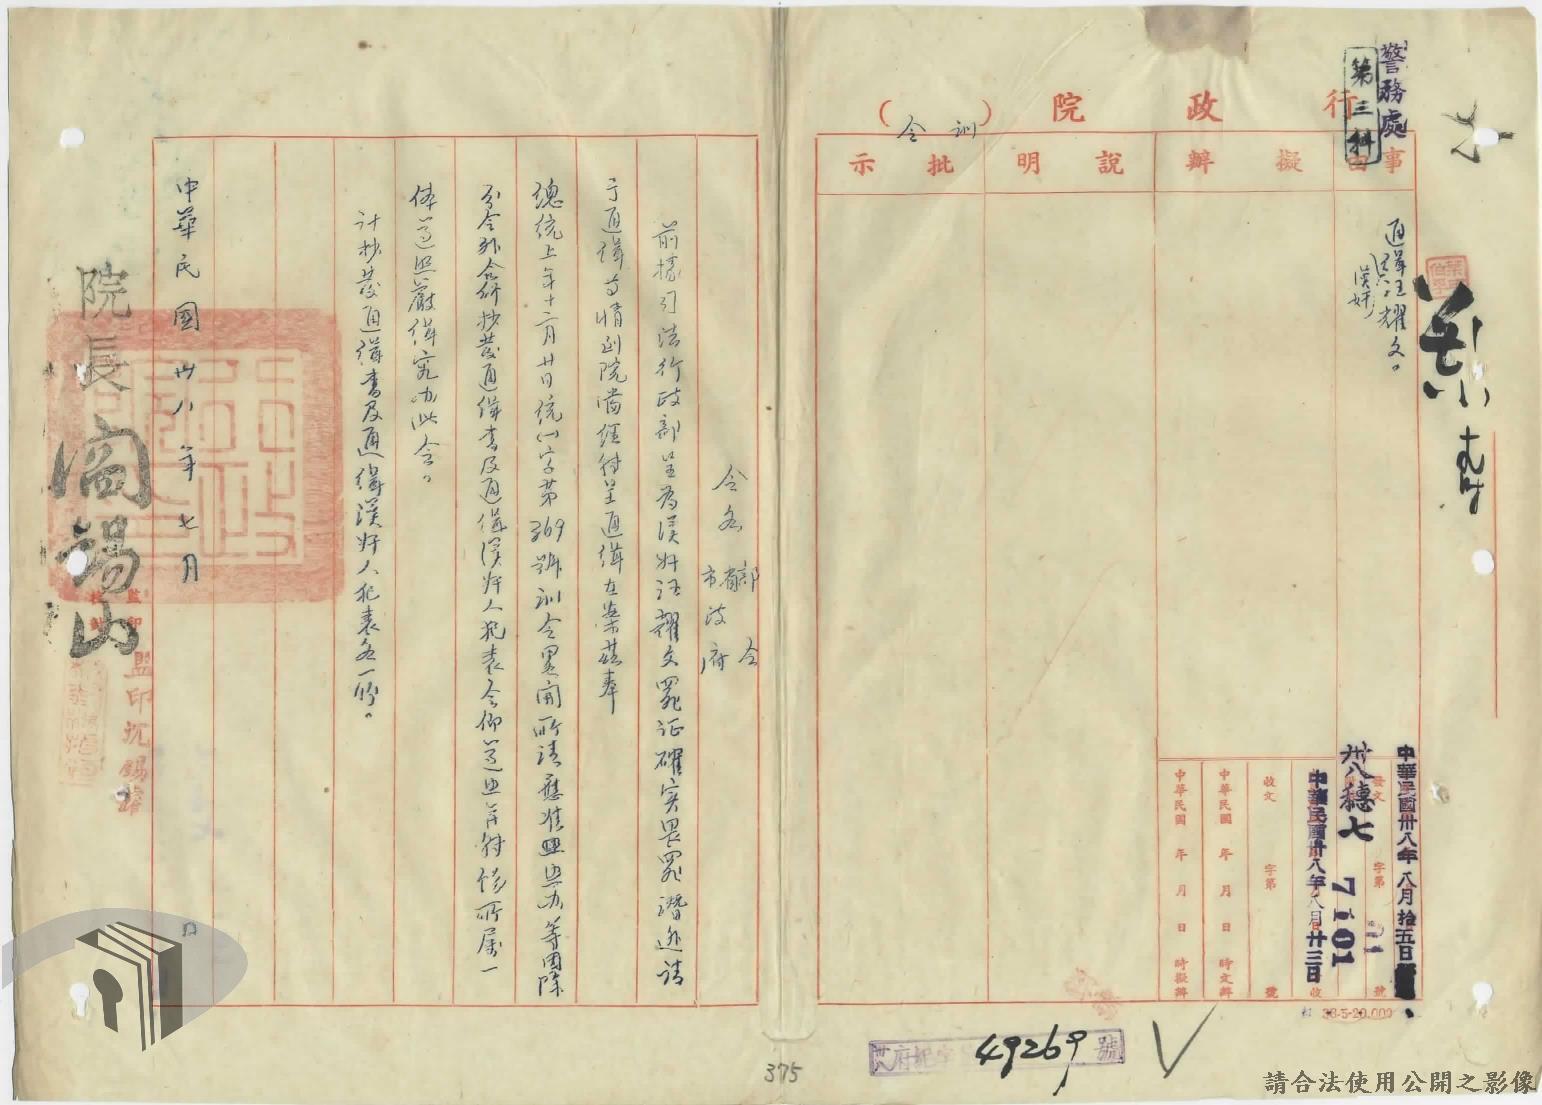 警務處
第三科
行政院（訓令）
事由
擬辦
說明
批示
通緝汪耀文。
漢奸
中華民國卅八年八月拾五日
發文
字第
號
卅八穗七
7101
中華民國卅八年八月廿三日
收
收文
字第
號
中華民國 年 月 日 時文辦
中華民國 年 月 日 時擬辦
38-5-20.000
府紀字
49269
號
令各部會
省市政府
前據司法行政部呈為漢奸汪耀文罪証確實畏罪潛逃請
予通緝等情到院當經轉呈通緝在案茲奉
總統上年十二月廿日統(一)字第369號訓令略開所請應准照辦等因除
分令外合行抄發通緝書及通緝漢奸人犯表令仰遵照并轉飭所屬一
体遵照嚴緝究办此令。
計抄發通緝書及通緝漢奸人犯表各一份。
中華民國卅八年七月
日
院長閻錫山
監印
校對
監印沈錫
375
請合法使用公開之影像